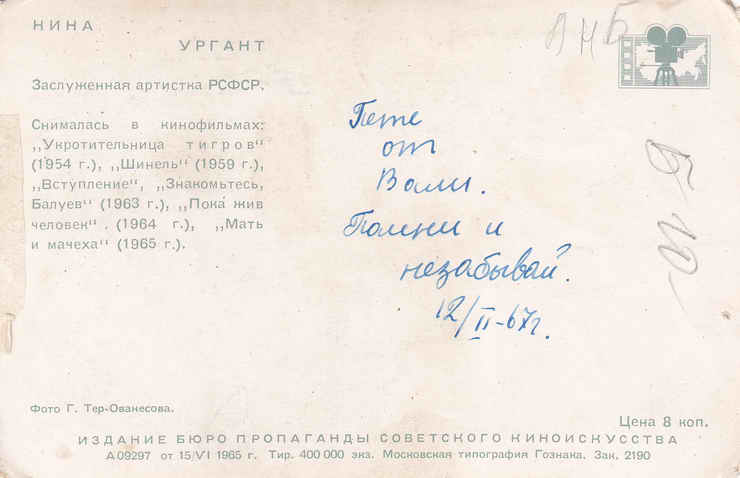 НИНА
УРГАНТ
Заслуженная артистка РСФСР.
Снималась в кинофильмах:
„Укротительница тигров“
(1954 г.), „Шинель“ (1959 г.),
„Вступление“, „Знакомьтесь,
Балуев“ (1963 г.), „Пока жив
человек“ . (1964 г.), „Мать
и мачеха“ (1965 г.).
Пете
от
Вали.
Помни и
незабывай.
12/II-67г.
Фото Г. Тер-Ованесова.
Цена 8 коп.
ИЗДАНИЕ БЮРО ПРОПАГАНДЫ СОВЕТСКОГО КИНОИСКУССТВА
А09297 от 15/VI 1965 г. Тир. 400 000 экз. Московская типография Гознака. Зак. 2190